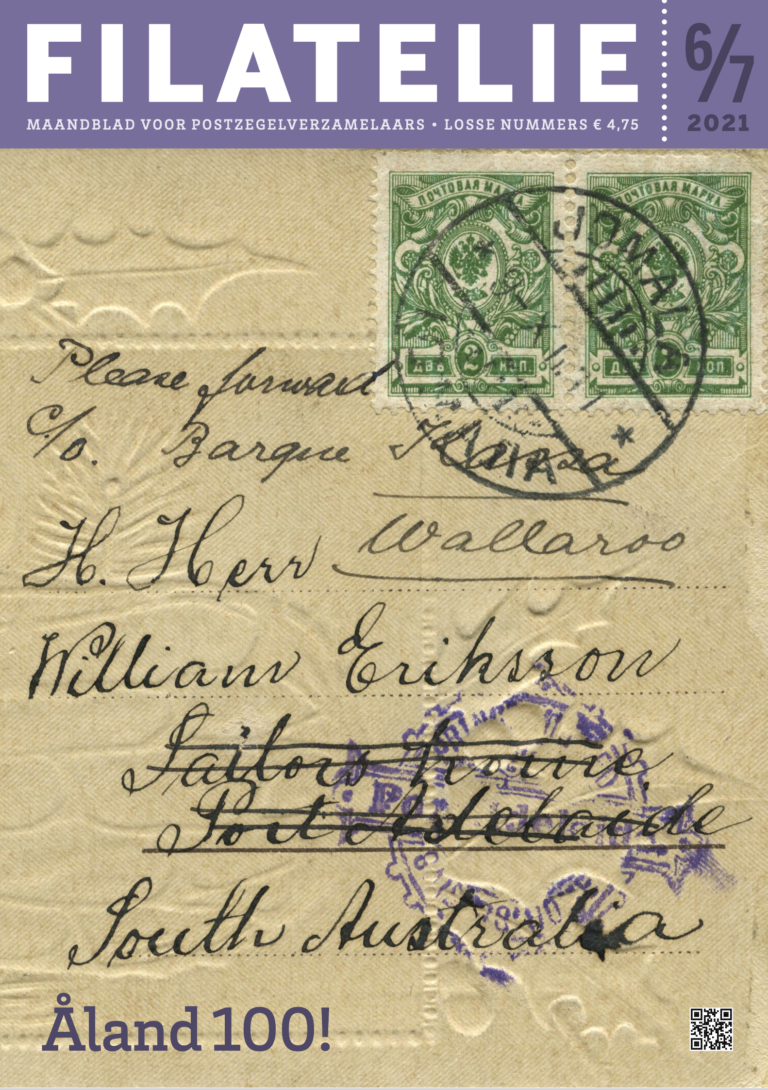 FILATELIE
6/7
2021
MAANDBLAD VOOR POSTZEGELVERZAMELAARS • LOSSE NUMMERS € 4,75
ПОЧТОВАЯ МАРКА
ПОЧТОВАЯ МАРКА
JOMALA
ДВѢ 2 КОП
2 КОП
Please forward
c/o. Barque
H. Herr Wallaroo
William Eriksson
Sailors home
Port Adelaide
South Australia
Åland 100!